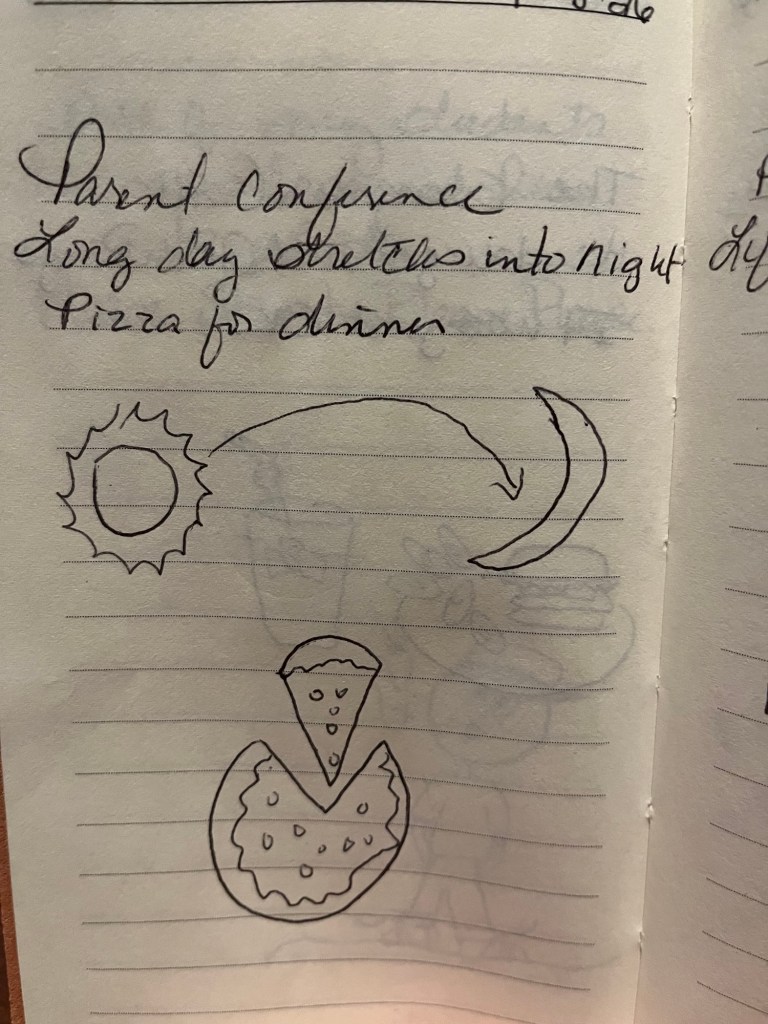 Parent Conference
Long day stretches into night
Pizza for dinner